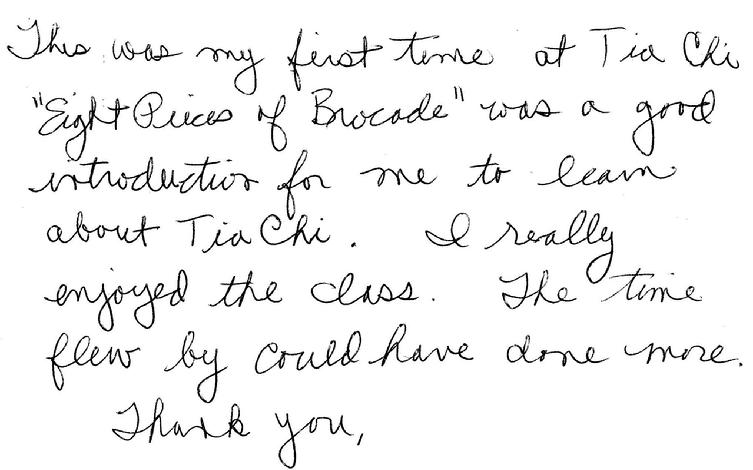 This was my first time at Tia Chi
"Eight Pieces of Brocade" was a good
introduction for me to learn
about Tia Chi. I really
enjoyed the class. The time
flew by could have done more.
Thank you,